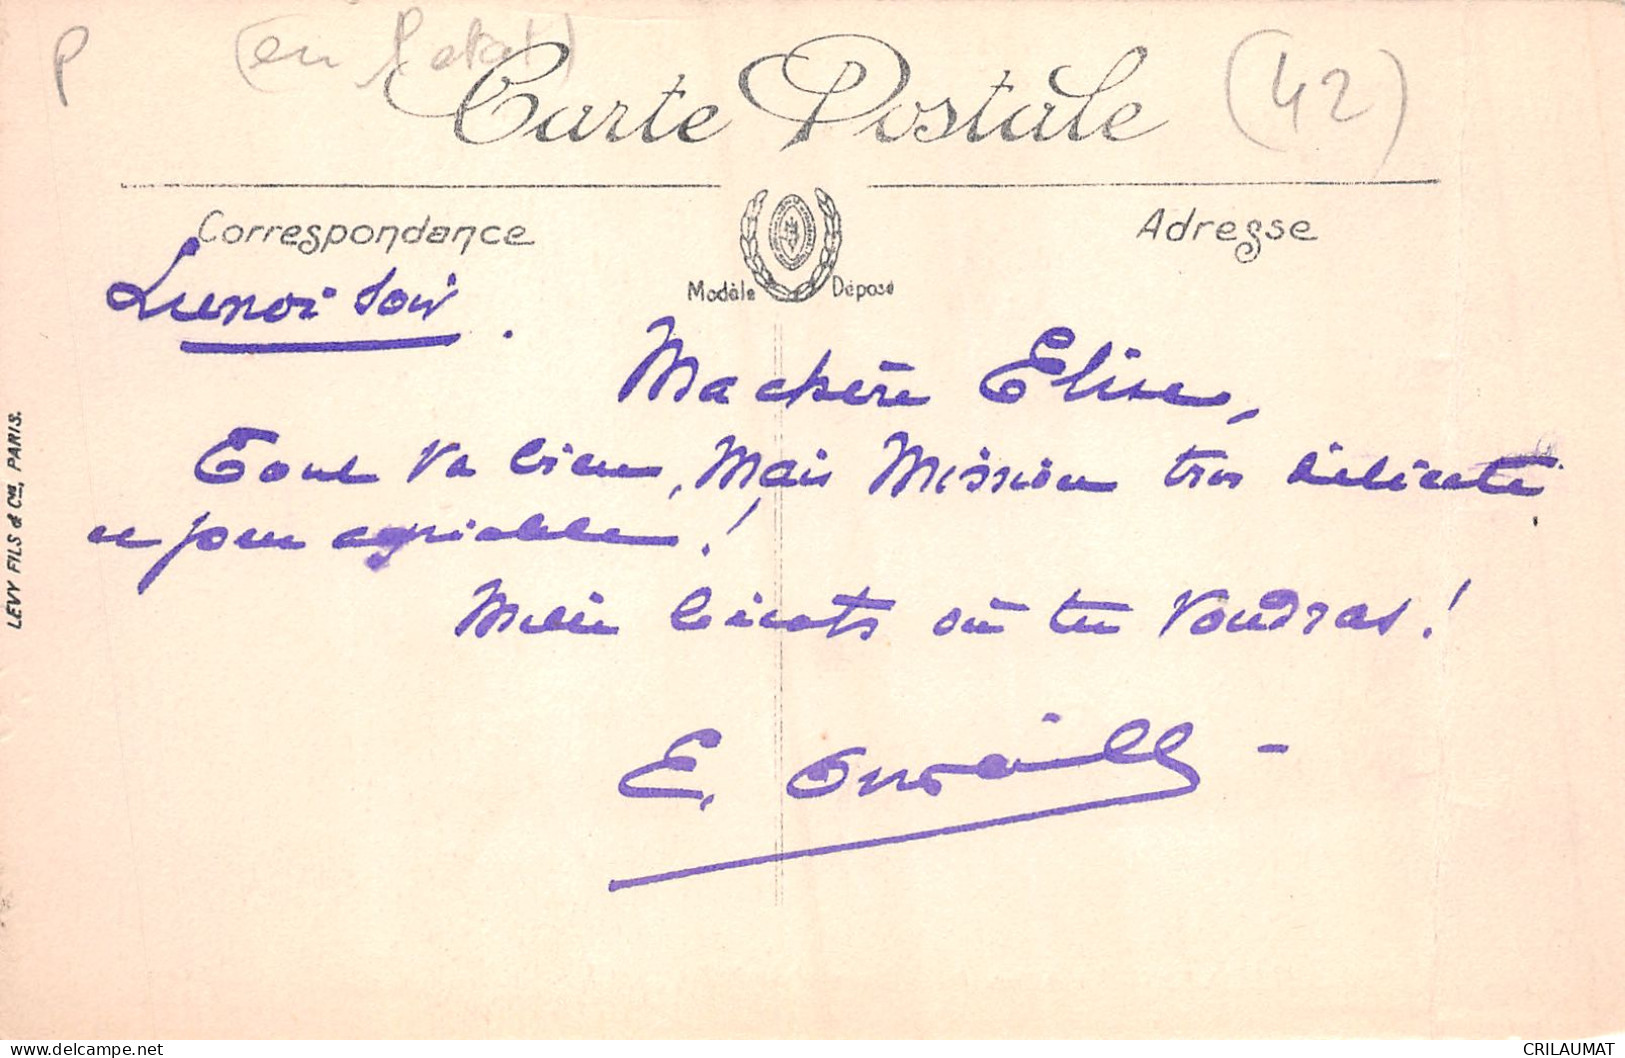 P (en l'etat) (42)
Carte Postale
Correspondance
Adresse
Modèle Déposé
Lundi soir.
Ma chère Elise,
Tout va bien, Mais Mission très délicate
et peu agréable !
Mille bécots où tu voudras !
E.
LEVY FILS & Cie, PARIS.
delcampe.net
CRILAUMAT